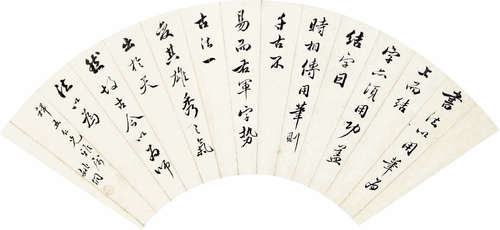 書
法以用筆為
上而結
字亦須用功蓋
結字因
時相傳用筆則
千古不
易而右軍字勢
古法一
變其雄秀之氣
出於天
然故古今以為師
法以為
祥五仁兄雅屬